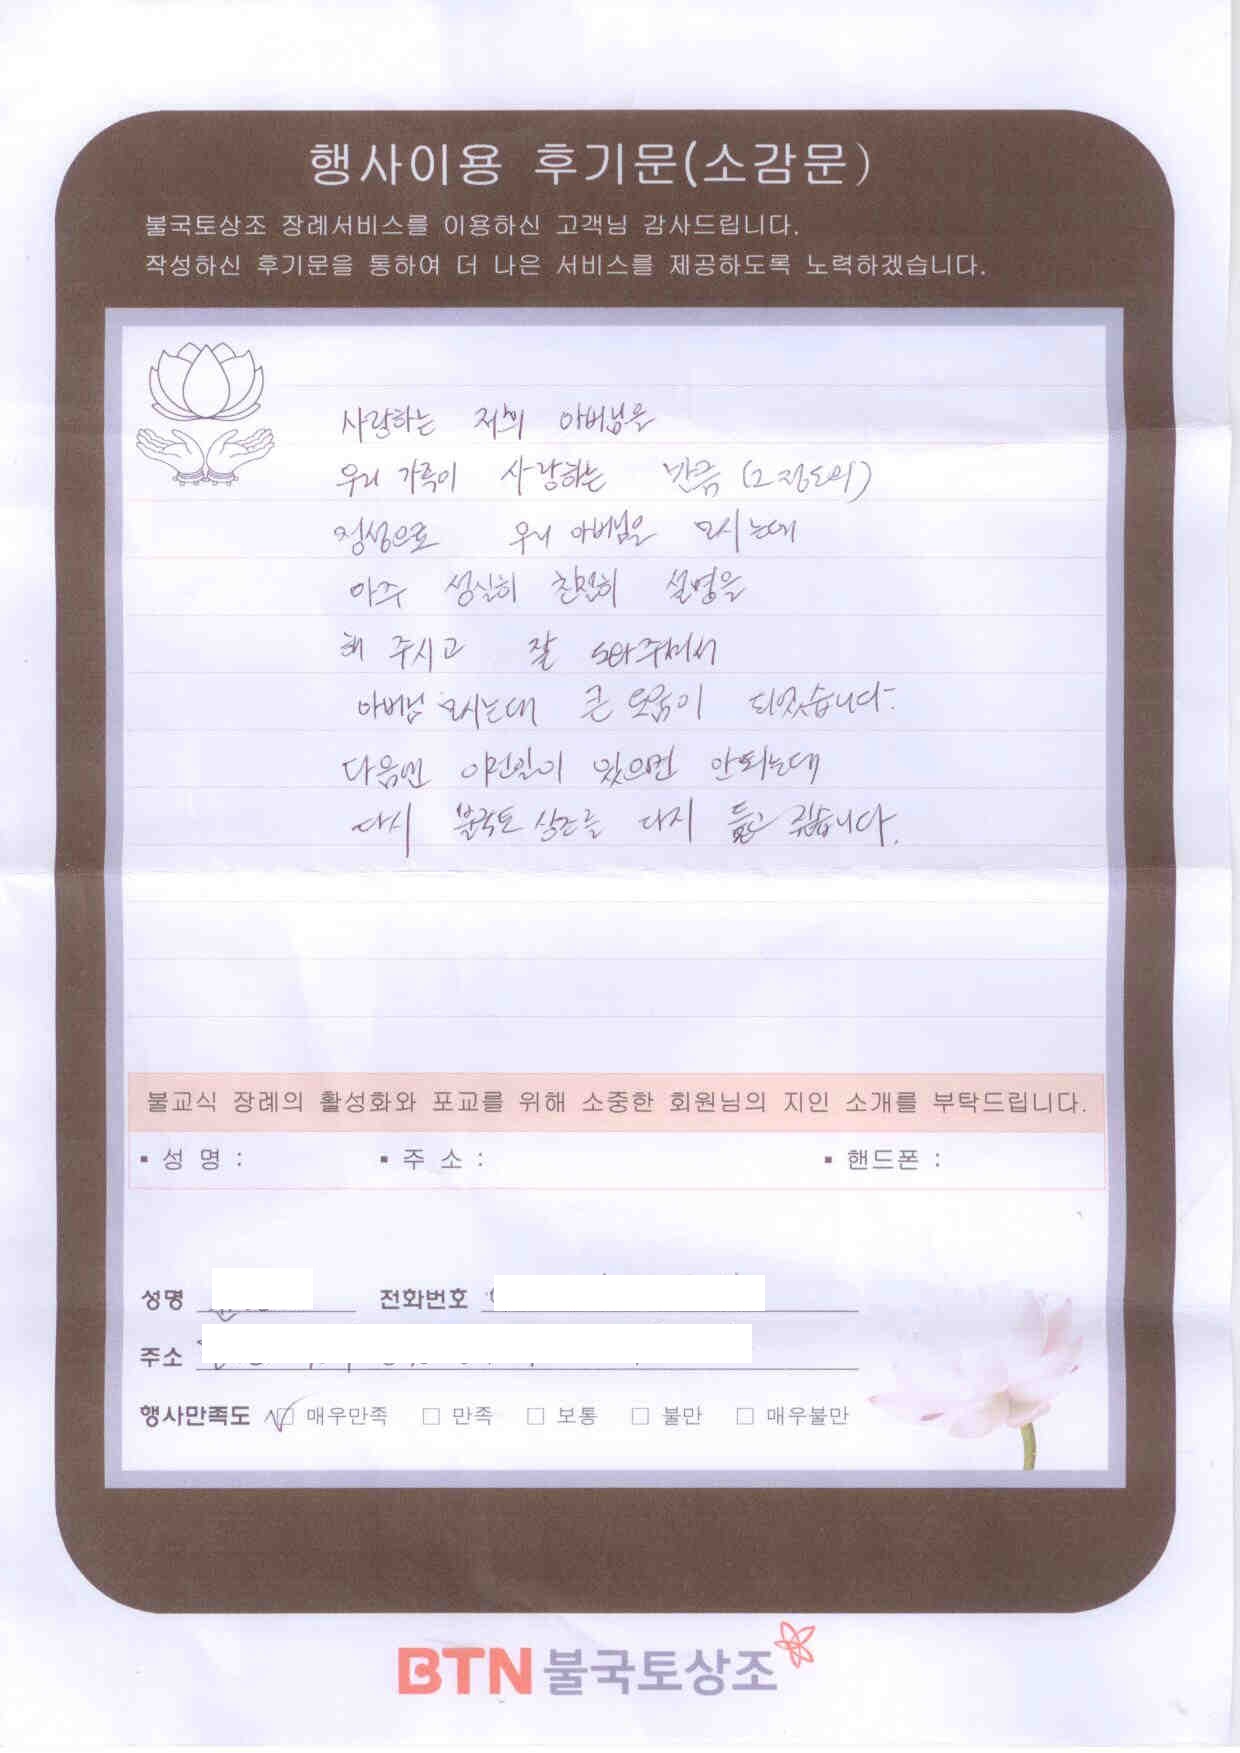 행사이용 후기문(소감문)
불국토상조 장례서비스를 이용하신 고객님 감사드립니다.
작성하신 후기문을 통하여 더 나은 서비스를 제공하도록 노력하겠습니다.
사랑하는 저희 아버님을
우리 가족이 사랑하는 만큼 (그 정도의)
정성으로 우리 아버님을 모시는데
아주 성실히 친절히 설명을
해 주시고 잘 도와주셔서
아버님 모시는대 큰 도움이 되었습니다.
다음엔 이런일이 있으면 안되는데
다시 불국토 상조를 다시 들고 싶습니다.
불교식 장례의 활성화와 포교를 위해 소중한 회원님의 지인 소개를 부탁드립니다.
▪ 성 명 : ▪ 주 소 : ▪ 핸드폰 :
성명 전화번호
주소
행사만족도 ☑ 매우만족 □ 만족 □ 보통 □ 불만 □ 매우불만
BTN 불국토상조